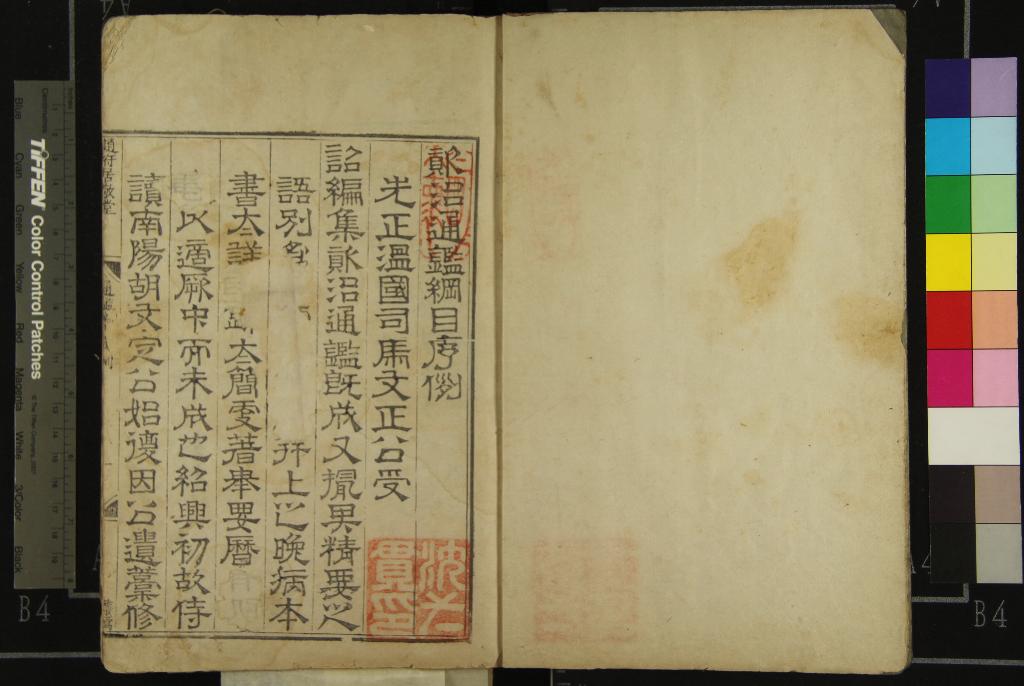 資治通鑑綱目序例
先正溫國司馬文正公受
詔編集資治通鑑旣成又撮其精要之
語別 幷上之晚病本
書太詳目錄太簡更著舉要曆
以適厥中而未成也紹興初故侍
讀南陽胡文定公始復因公遺藁修
趙府居敬堂
TIFFEN Color Control Patches
Blue Cyan Green Yellow Red Magenta White 3/Color Black
B4
B4